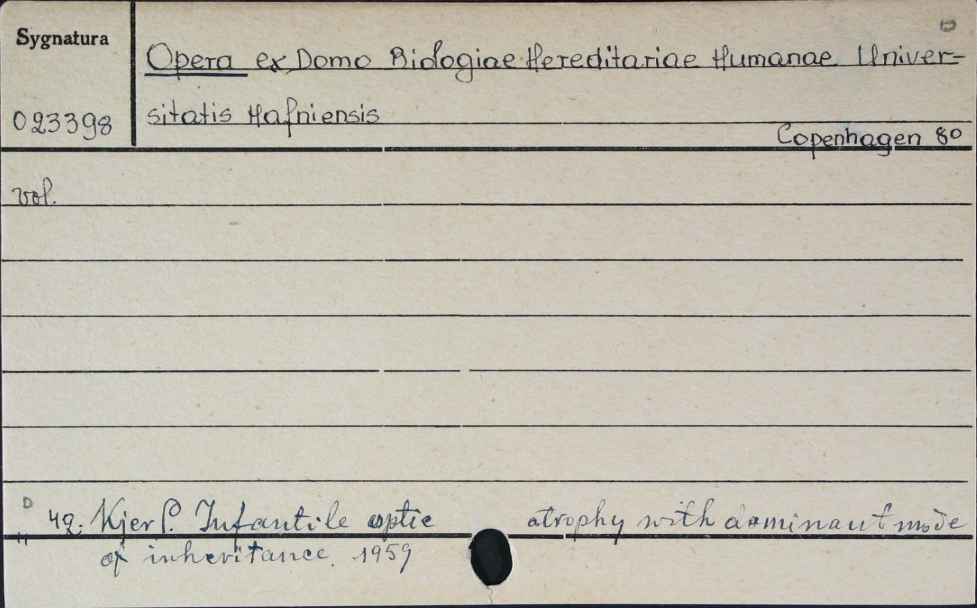 Sygnatura
Opera ex Domo Biologiae Hereditariae Humanae Univer-
023398 sitatis Hafniensis
Copenhagen 8o
vol.
D
" 42: Kjer P. Infantile optic atrophy with dominant mode
of inheritance. 1959